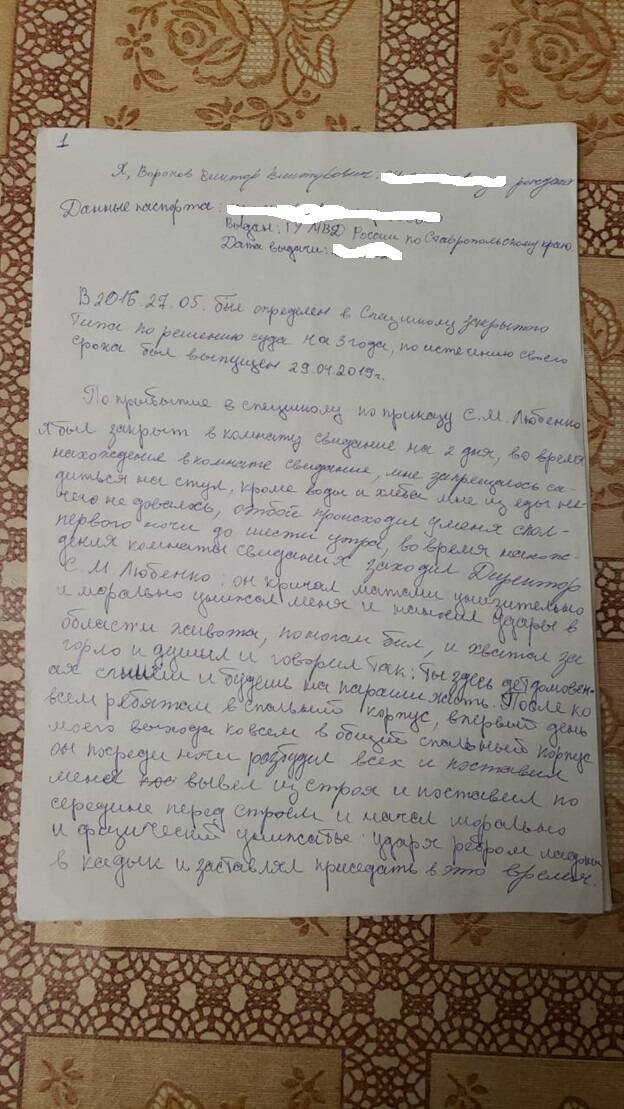 1
Я, Воронов Виктор Викторович. рождения
Данные паспорта:
Выдан: ГУ МВД России по Ставропольскому краю
Дата выдачи:
В 2016. 27. 05. был определен в Спецшколу закрытого
Типа по решению суда на 3 года, по истечению своего
срока был выпущен 29.04.2019г.
По прыбытие в спецшколу по приказу С.М. Любенко
я был закрыт в комнату свидание на 2 дня, во время
нахождение в комнате свидание, мне запрещалось са-
диться на стул, кроме воды и хлеба мне из еды не-
чего не довалось, отбой происходил у меня с
первого ночи до шести утра, во время нахож-
дения комнаты свидания заходил Директор
С.М Любенко: он кричал матами унизительно
и морально унижал меня и наносил удары в
области живота, по ногам бил, и хватал за
горло и душил и говорил так: ты здесь детдомовск-
ая и будешь на параши жить. После ко
всем ребятам в спальный корпус, в первый день
моего выхода ко всем в общий спальный корпус
он посреди ночи разбудил всех и поставил
меня вывел из строя и поставил по
середине перед строем и начал морально
и физический унижать ударя ребром ладони
в кадык и заставлял приседать в это время.